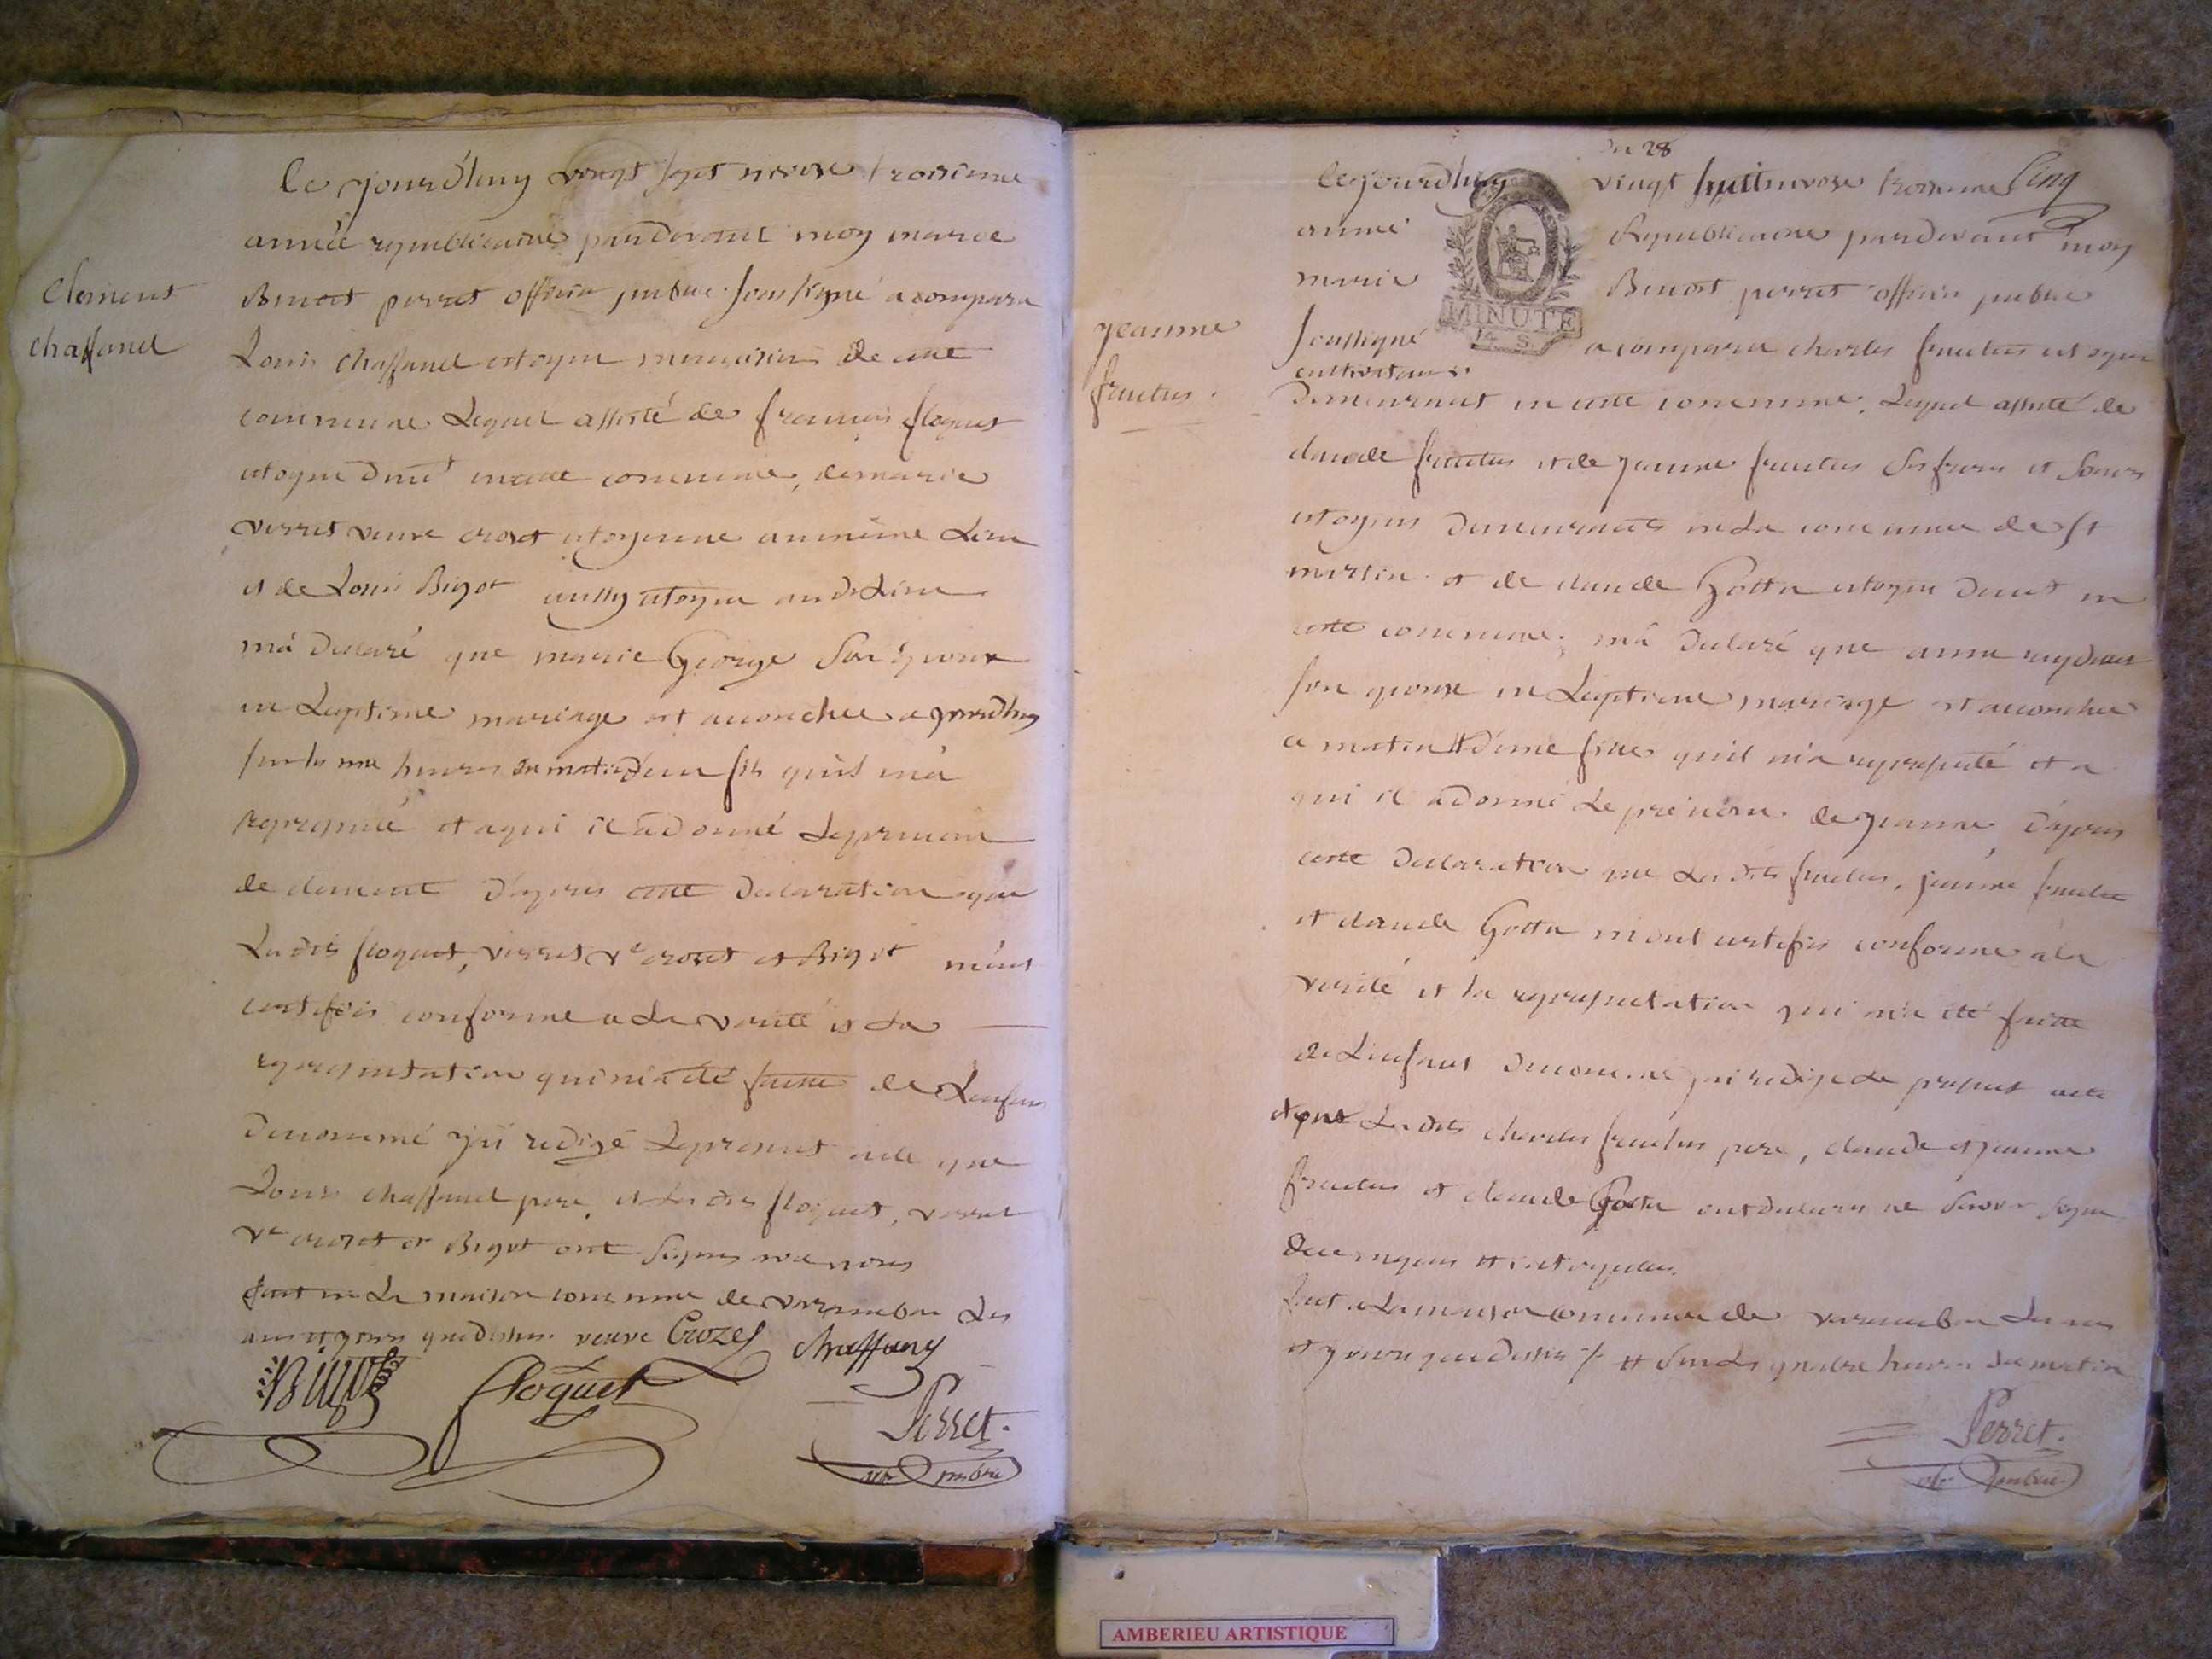 Clement
chaffand
Ce jourdhuy vingt sept nivose troisieme
année republicaine pardevant moy marie
Benoit perret officier public soussigné a comparu
Louis chaffand citoyen menuisier de cette
commune Lequel assisté de francois floquet
citoyen dmt en cette commune, de marie
verret veuve crozet citoyenne au même Lieu
et de Louis Bigot aussy citoyen audt Lieu
m'a declaré que marie George Son Epouse
en Legitime mariage est accouchée aujourdhuy
sur les heures du matin d'un fils qu'il m'a
representé et a qui il a donné Le prenom
de clement d'apres cette declaration que
Lesdts floquet, verret ve crozet et Bigot m'ont
certifiés conforme a La verité et La
representation qui m'a été faitte de Lenfant
denommé j'ai redigé Le present acte que
Louis chaffand pere, et Lesdts floquet, verret
ve crozet et Bigot ont Signes avec nous
fait en La maison commune de varambon Les
an et jours que dessus. veuve Crozet chaffang
Bigot floquet
Perret.
off public
Du 28
Cinq
jeanne
fructus.
Cejourdhuy vingt huit nivose troisieme
année Republicaine pardevant moy
marie Benoist perret officier public
MINUTE
14 S.
soussigné a comparu charles fructus citoyen
cultivateur
Demeurant en cette commune, Lequel assisté de
claude fructus et de jeanne fructus Ses frere et Soeur
citoyens demeurants en La commune de St
martin et de claude Gotta citoyen demt en
cette commune, m'a declaré que anne
son epouse en Legitime mariage est accouchée
ce matin # d'une fille qu'il m'a representé et a
qui il a donné Le prénom de jeanne, d'apres
cette declaration que Lesdits fructus, jeanne fructus
et claude Gotta m'ont certifiés conforme a la
verité et la representation qui m'a été faitte
de L'enfant denommé j'ai redigé Le present acte
et que Lesdts charles fructus pere, claude et jeanne
fructus et claude Gotta ont declarés ne Savoir signer
de ce enquis et interpellés
fait a La maison commune de varambon Les an
et jour que dessus /. # Sur Les quatre heures du matin
Perret.
off public
AMBERIEU ARTISTIQUE